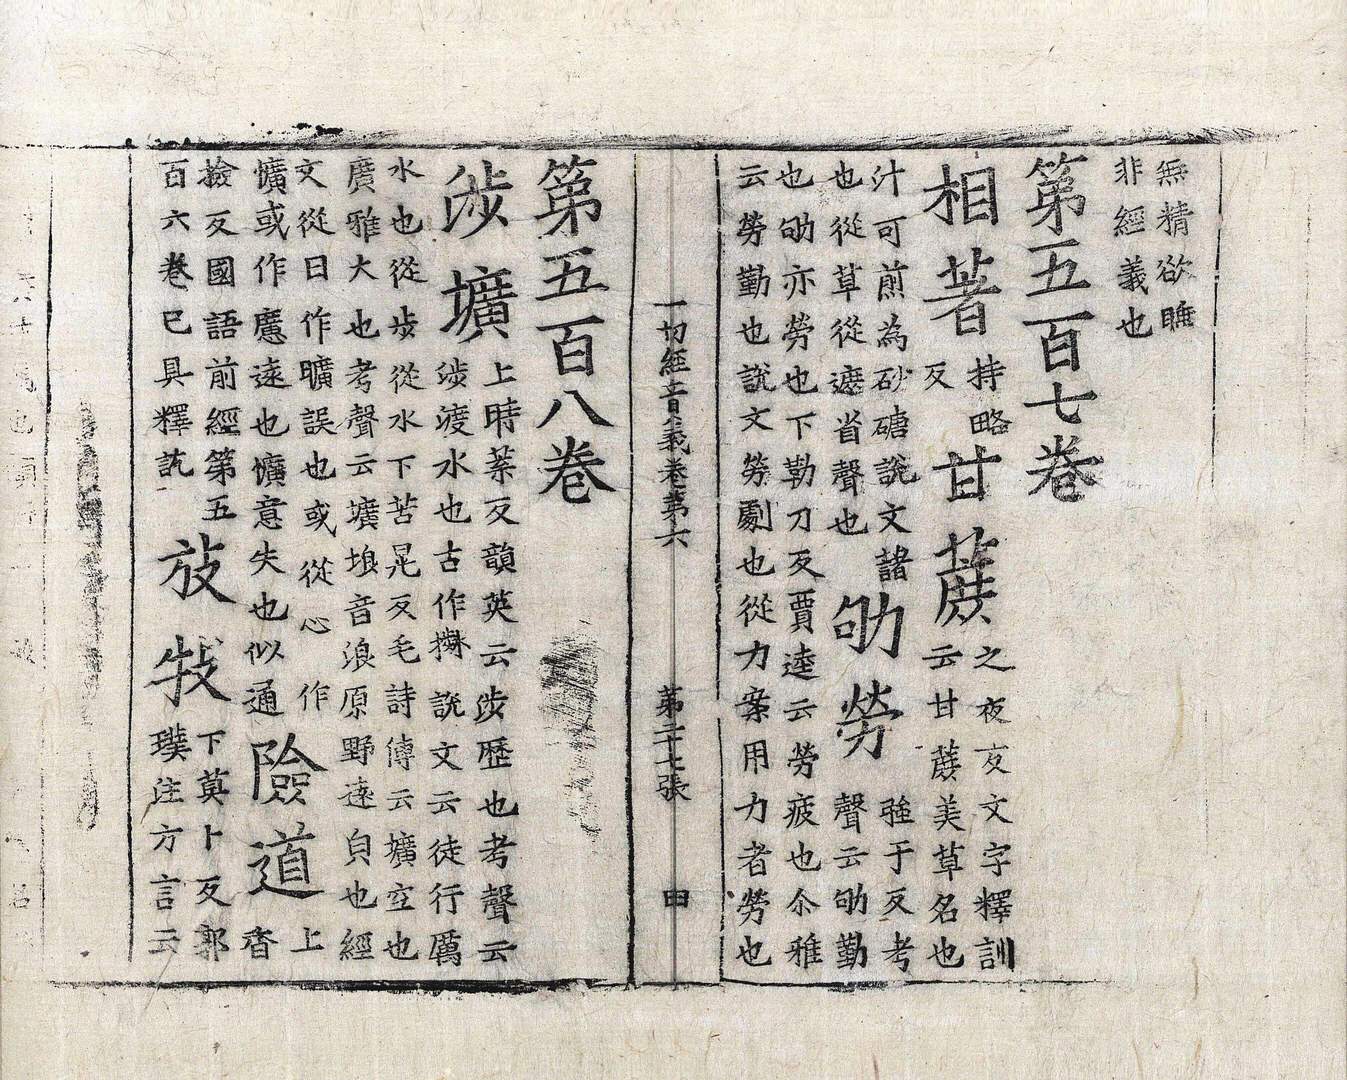 無精欲瞧
非經義也
第五百七卷
相著
持略
反
甘蔗
之夜反文字釋訓
云甘蔗美草名也
汁可煎為砂磄說文諸
也從草從遮省聲也
劬勞
强于反考
聲云劬勤
也劬亦勞也下勒刀反賈逵云勞疲也尒雅
云勞勤也說文勞劇也從力案用力者勞也
一切經音義卷第六 第二十七張 田
第五百八卷
涉壙
上時葉反韻英云涉歷也考聲云
涉渡水也古作說文云徒行厲
水也從步從水下苦晃反毛詩傳云壙空也
廣雅大也考聲云壙埌音浪原野遠皃也經
文從日作曠誤也或從心作
懭或作懬遠也懭意失也似通
險道
上
香
撿反國語前經第五
百六卷已具釋訖
放牧
下莫卜反郭
璞注方言云